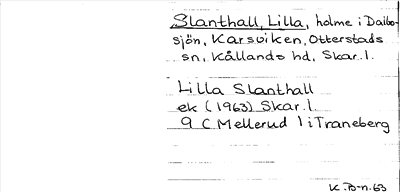 Slanthall, Lilla, holme i Dalbo-
sjön, Karsviken, Otterstads
sn, Kållands hd, Skar. l.
Lilla Slanthall
ek (1963) Skar. l.
9 C Mellerud l i Traneberg
K. B-n. 63